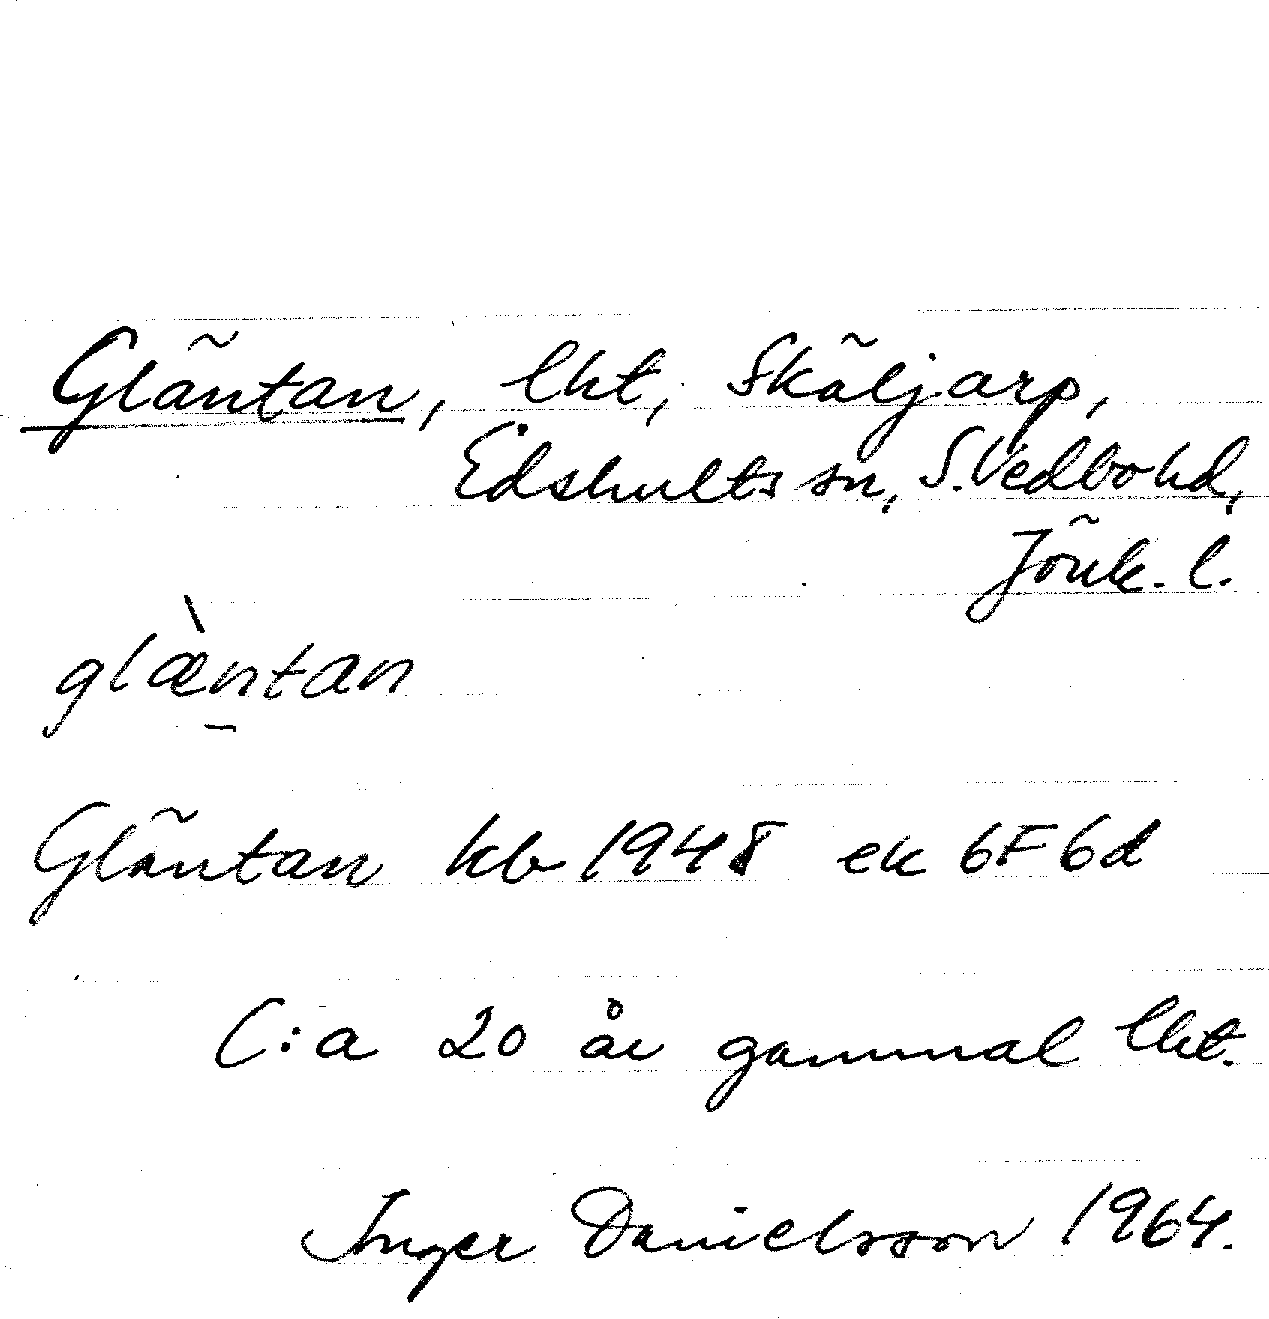 Gläntan, lht, Skäljarp,
Edshults sn, S. Vedbo hd,
Jönk. l.
glæ̀nta̠n
Gläntan kb 1948 ek 6F6d
C:a 20 år gammal lht.
Inger Danielsson 1964.